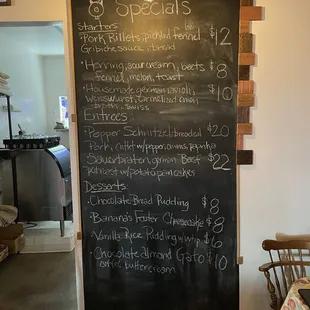 Specials
Starters
Pork Rillets, pickled fennel $12
Gribiche sauce, bread
Herring, sour cream, beets $8
fennel, melon, toast
Housemade german ravioli $10
Weisswurst, Caramelized onion
swiss
Entrees:
Pepper Schnitzel: breaded $20
Pork cutlet w/ pepper, onions, paprika
Sauerbraten, german Roast $22
w/ potato pancakes
Desserts:
Chocolate Bread Pudding $8
Banana's Foster Cheesecake $8
Vanilla Rice Pudding w/ whip $6
Chocolate almond Gato $10
buttercream